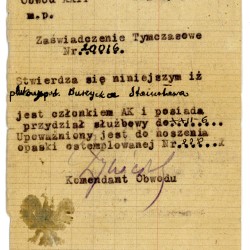 Obwód XXII
m.p.
Zaświadczenie Tymczasowe
Nr. 10016.
Stwierdza się niniejszym iż
Stanisława
jest członkiem AK i posiada
przydział służbowy do
Upoważniony jest do noszenia
opaski ostemplowanej Nr.
Komendant Obwodu